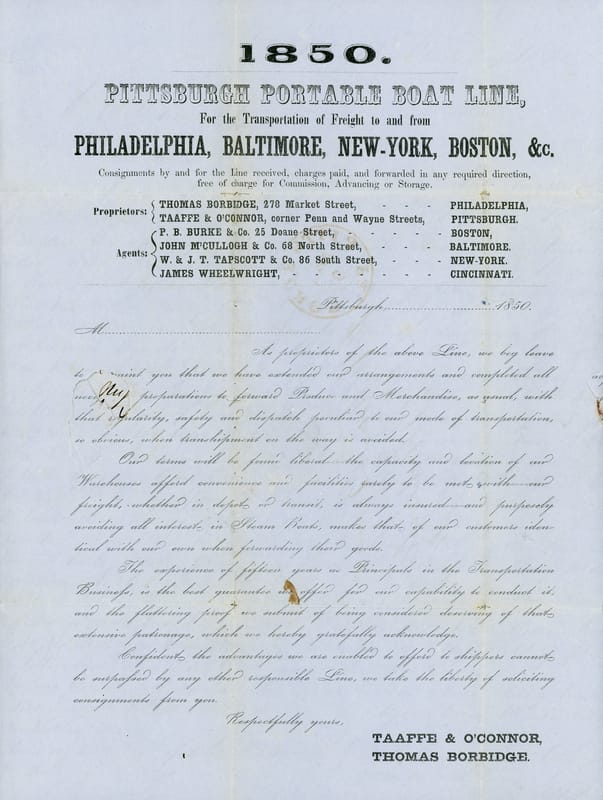 1850.
PITTSBURGH PORTABLE BOAT LINE,
For the Transportation of Freight to and from
PHILADELPHIA, BALTIMORE, NEW-YORK, BOSTON, &c.
Consignments by and for the Line received, charges paid, and forwarded in any required direction,
free of charge for Commission, Advancing or Storage.
Proprietors: THOMAS BORBIDGE, 278 Market Street, - - - PHILADELPHIA,
TAAFFE & O'CONNOR, corner Penn and Wayne Streets, PITTSBURGH.
Agents: P. B. BURKE & Co. 25 Doane Street, - - - - BOSTON,
JOHN M'CULLOGH & Co. 68 North Street, - - - BALTIMORE.
W. & J. T. TAPSCOTT & Co. 86 South Street, - - - NEW-YORK.
JAMES WHEELWRIGHT, - - - - - - - CINCINNATI.
Pittsburgh, 1850.
M
As proprietors of the above Line, we beg leave
to you that we have extended our arrangements and completed all
preparations to forward Produce and Merchandise, as usual, with
that regularity, safety and dispatch peculiar to our mode of transportation,
so obvious, when transhipment on the way is avoided.
Our terms will be found liberal—the capacity and location of our
Warehouses afford convenience and facilities rarely to be met with—our
freight, whether in depot or transit, is always insured—and purposely
avoiding all interest in Steam Boats, makes that of our customers iden-
tical with our own when forwarding their goods.
The experience of fifteen years as Principals in the Transportation
Business, is the best guarantee we offer for our capability to conduct it,
and the flattering proof we submit of being considered deserving of that
extensive patronage, which we hereby gratefully acknowledge.
Confident the advantages we are enabled to afford to shippers cannot
be surpassed by any other responsible Line, we take the liberty of soliciting
consignments from you.
Respectfully yours,
TAAFFE & O'CONNOR,
THOMAS BORBIDGE.